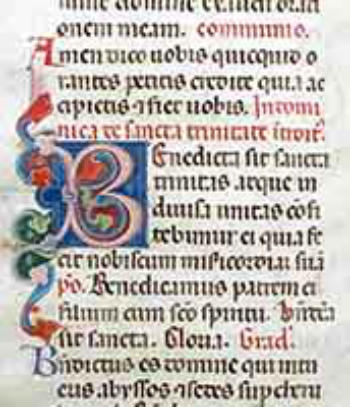 nune domine exaudi orati
onem meam. communio.
Amen dico uobis quicquid o
rantes petitis credite quia ac
cipietis ⁊ fiet uobis. In domi
nica de sancta trinitate introit.
Benedicta sit sancta
trinitas atque in
diuisa unitas cōfi
tebimur ei quia fe
cit nobiscum misicordiaz suā
p̄s. Benedicamus patrem et
filium cum sc̄o spiritu. bn̄dcā
sit sancta. Gloria. Grad.
Bn̄dictus es domine qui intu
eris abyssos ⁊ sedes sup cheru